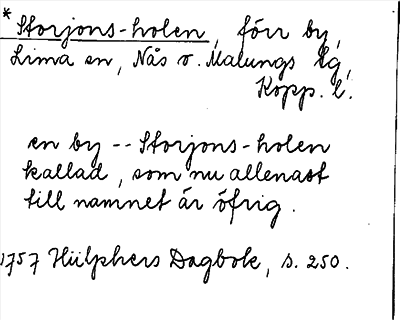 * Storjons-holen, förr by,
Lima sn, Nås o. Malungs tg,
Kopp. l.
en by -- Storjons-holen
kallad, som nu allenast
till namnet är öfrig.
1757 Hülphers Dagbok, s. 250.